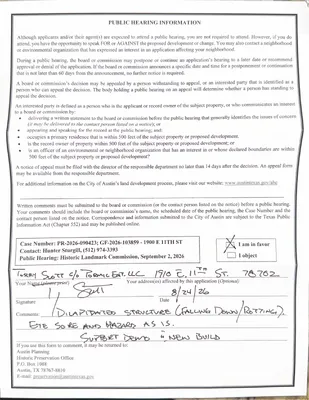 PUBLIC HEARING INFORMATION
Although applicants and/or their agent(s) are expected to attend a public hearing, you are not required to attend. However, if you do
attend, you have the opportunity to speak FOR or AGAINST the proposed development or change. You may also contact a neighborhood or
environmental organization that has expressed an interest in an application affecting your neighborhood.
During a public hearing, the board or commission may postpone or continue an application's hearing to a later date or recommend
approval or denial of the application. If the board or commission announces a specific date and time for a postponement or continuation
that is not later than 60 days from the announcement, no further notice is required.
A board or commission's decision may be appealed by a person with standing to appeal, or an interested party that is identified as a
person who can appeal the decision. The body holding a public hearing on an appeal will determine whether a person has standing to
appeal the decision.
An interested party is defined as a person who is the applicant or record owner of the subject property, or who communicates an interest
to a board or commission by:
• delivering a written statement to the board or commission before the public hearing that generally identifies the issues of concern
(it may be delivered to the contact person listed on a notice); or
• appearing and speaking for the record at the public hearing; and:
• occupies a primary residence that is within 500 feet of the subject property or proposed development;
• is the record owner of property within 500 feet of the subject property or proposed development; or
• is an officer of an environmental or neighborhood organization that has an interest in or whose declared boundaries are within
500 feet of the subject property or proposed development.
A notice of appeal must be filed with the director of the responsible department no later than 14 days after the decision. An appeal form
may be available from the responsible department.
For additional information on the City of Austin's land development process, please visit our website: www.austintexas.gov/abc
Written comments must be submitted to the board or commission (or the contact person listed on the notice) before a public hearing.
Your comments should include the board or commission's name, the scheduled date of the public hearing, the Case Number and the
contact person listed on the notice. Correspondence and information submitted to the City of Austin are subject to the Texas Public
Information Act (Chapter 552) and may be published online.
Case Number: PR-2026-090423; GF-2026-103859 - 1900 E 11TH ST
Contact: Hunter Sturgill, (512) 974-3393
Public Hearing: Historic Landmark Commission, September 2, 2026
I am in favor
I object
Scott c/o 1910 E. 11TH ST. 78702
Your Name (please print)
Your address(es) affected by this application (Optional)
8/24/26
Signature
Date
Comments: DILAPIDATED STRUCTURE (FALLING DOWN/ROTTING).
EYE SORE AND HAZARD AS IS.
SUPPORT DEMO & NEW BUILD
If you use this form to comment, it may be returned to:
Austin Planning
Historic Preservation Office
P.O. Box 1088
Austin, TX 78767-8810
E-mail: preservation@austintexas.gov